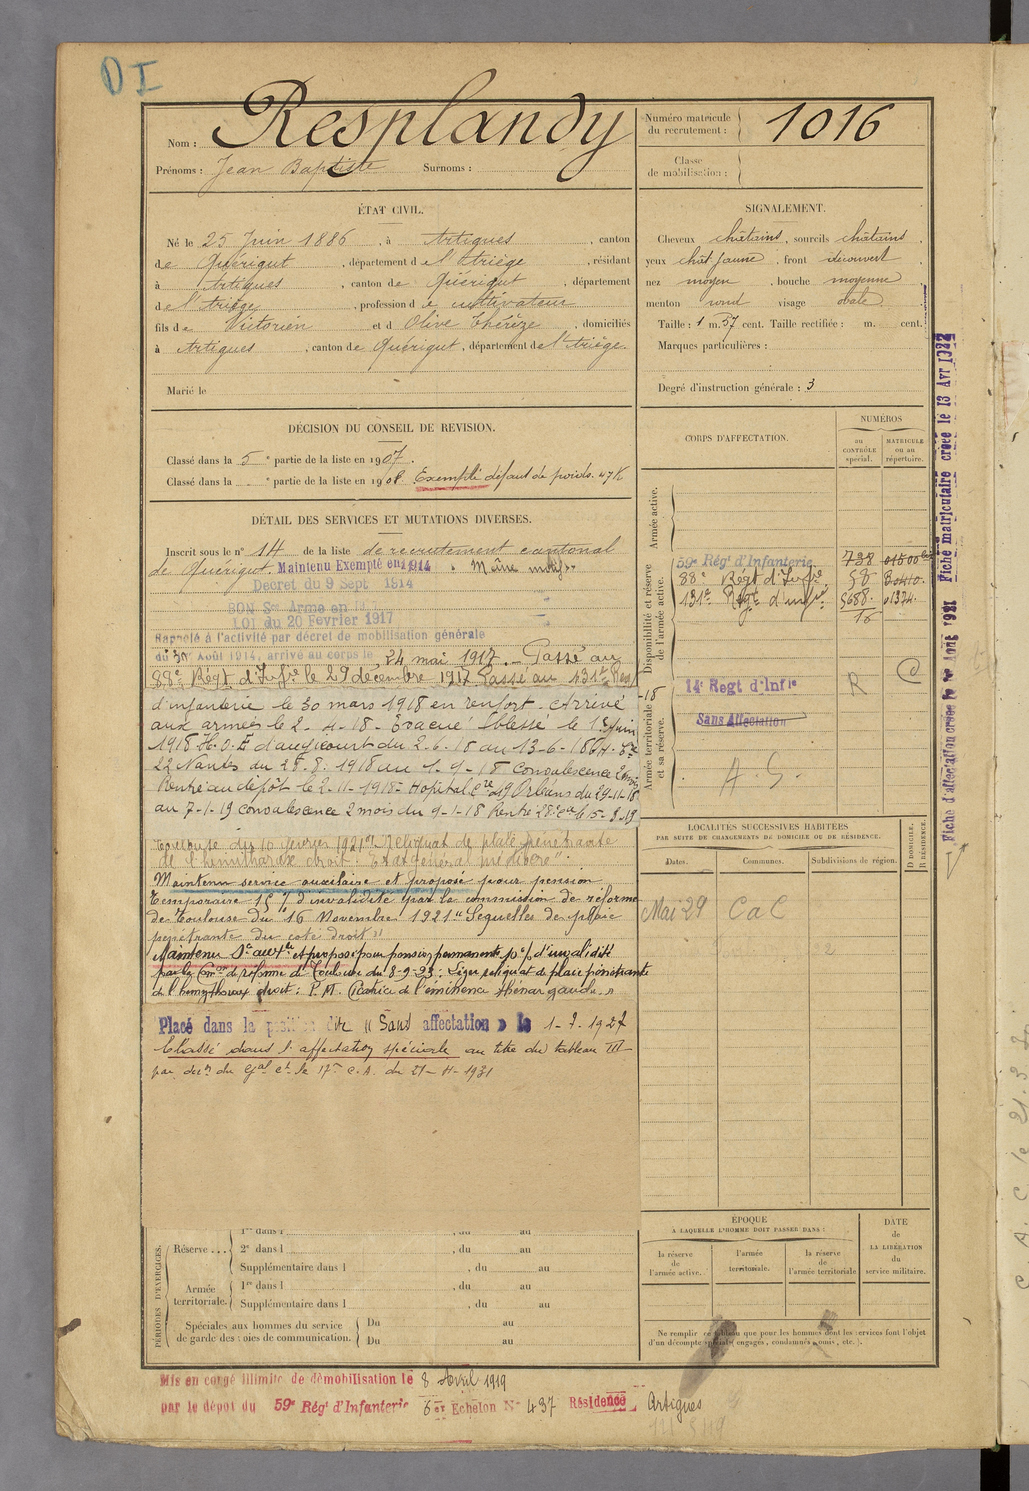 DI
Nom : Resplandy
Prénoms : Jean Baptiste Surnoms :
Numéro matricule du recrutement : 1016
Classe de mobilisation :
ÉTAT CIVIL.
Né le 25 Juin 1886, à Artigues, canton
de Quérigut, département de l'Ariège, résidant
à Artigues, canton de Quérigut, département
de l'Ariège, profession de cultivateur
fils de Victorien et d Olive Thérèze, domiciliés
à Artigues, canton de Quérigut, département de l'Ariège.
Marié le
SIGNALEMENT.
Cheveux châtains, sourcils châtains,
yeux chât. jaune, front découvert
nez moyen, bouche moyenne
menton rond visage ovale
Taille : 1 m. 57 cent. Taille rectifiée : m. cent.
Marques particulières :
Degré d'instruction générale : 3
DÉCISION DU CONSEIL DE REVISION.
Classé dans la 5e partie de la liste en 1907.
Classé dans la e partie de la liste en 1908 Exempté défaut de poids. 47K
DÉTAIL DES SERVICES ET MUTATIONS DIVERSES.
Inscrit sous le n° 14 de la liste de recrutement cantonal
de Quérigut. Maintenu Exempté en 1914 Même motif
Décret du 9 Sept 1914
BON Sce Armé en
LOI du 20 Fevrier 1917
Rappelé à l'activité par décret de mobilisation générale
du Août 1914, arrivé au corps le 24 mai 1917. Passé au
88e Régt d'Infie le 29 décembre 1917 Passé au 131e Régt
d'infanterie le 30 mars 1918 en renfort. Arrivé
aux armées le 2-4-18- Evacué blessé le 1er Juin
1918 H.O.E d'augicourt du 2-6-18 au 13-6-18
22 Nantes du 28.8.1918 au 1-9-18 Convalescence 2 mois
Rentré au dépôt le 2-11-1918- Hopital Orléans du 29-11-18
au 7-1-19 convalescence 2 mois du 9-1-18 Rentré
Toulouse du 10 1921 "Reliquat de plaie pénétrante
de l'hemithorax droit : Etat général médiocre".
Maintenu service auxiliaire et proposé pour pension
temporaire 15 % d'invalidité par la commission de réforme
de Toulouse du 16 Novembre 1921 "Sequelles de plaie
pénétrante du coté droit"
Maintenu Sce auxre et proposé pour pension permanente % d'invalidité
par la Com. de réforme de Toulouse du 8-9-23 : Léger reliquat de plaie pénétrante
de l'hemythorax droit : P.M. Cicatrice de l'éminence thénar gauche."
Placé dans la position dite "Sans affectation" le 1-7-1927
Classé dans l'affectation spéciale au titre du tableau III
par du Gal Ct le 17e C.A. du 21-4-1931
CORPS D'AFFECTATION.
NUMÉROS
au CONTRÔLE spécial.
MATRICULE ou au répertoire.
Armée active.
Disponibilité et réserve de l'armée active.
59e Régt d'Infanterie 738
88e Régt d'Infie 58
131e Régt d'infie 5688 01374
16
Armée territoriale et sa réserve.
14e Regt d'Infie R
Sans Affectation
A.S.
LOCALITÉS SUCCESSIVES HABITÉES
PAR SUITE DE CHANGEMENTS DE DOMICILE OU DE RÉSIDENCE.
Dates. Communes. Subdivisions de région. D DOMICILE. R RÉSIDENCE.
Mai 29 CaC
ÉPOQUE
À LAQUELLE L'HOMME DOIT PASSER DANS :
la réserve de l'armée active.
l'armée territoriale.
la réserve de l'armée territoriale
DATE de LA LIBÉRATION du service militaire.
Ne remplir ce tableau que pour les hommes dont les services font l'objet
d'un décompte spécial (engagés, condamnés, omis, etc.).
PÉRIODES D'EXERCICES.
Réserve ... 1re dans l , du au
2e dans l , du au
Supplémentaire dans l , du au
Armée territoriale. 1re dans l , du au
Supplémentaire dans l , du au
Spéciales aux hommes du service de garde des voies de communication. Du au
Du au
Mis en congé illimité de démobilisation le 8 Avril 1919
par le dépot du 59e Régt d'Infanterie 6er Echelon N° 437 Résidence Artigues
Fiche matriculaire créée le 13 Avr 1922
Fiche d'affectation créée le Août 1921